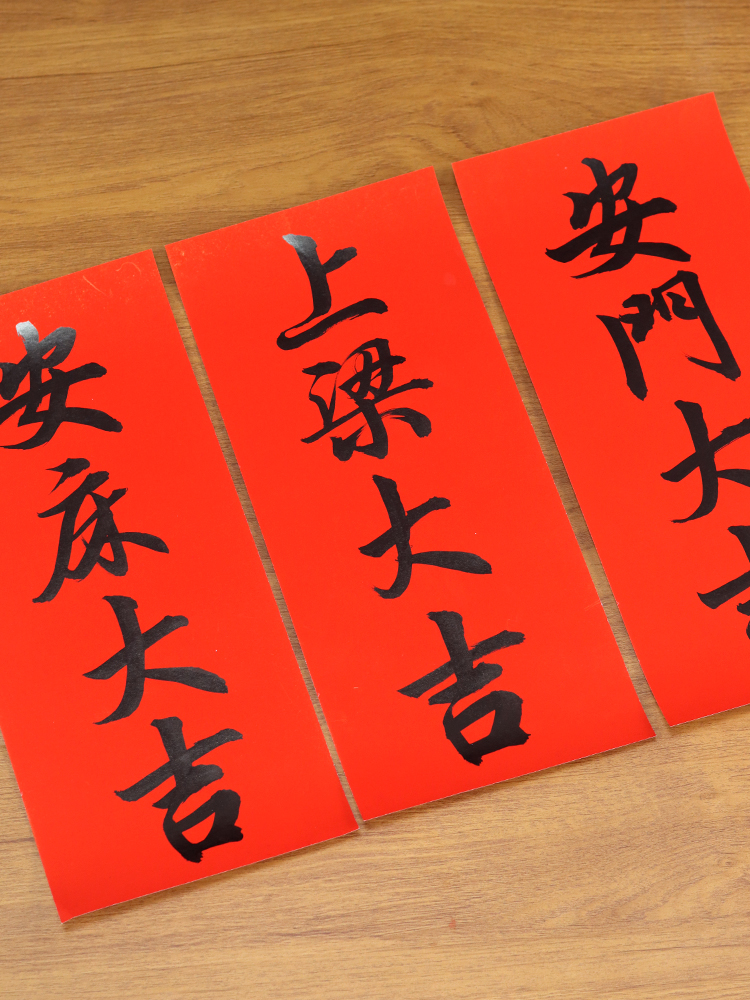 安門大吉
上梁大吉
安床大吉